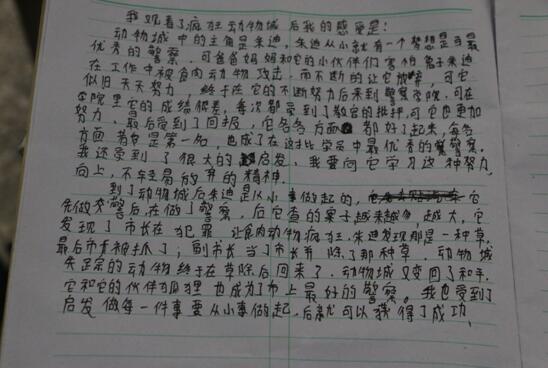 我观看了疯狂动物城后我的感受是:
动物城中的主角是朱迪,朱迪从小就有一个梦想是当最
优秀的警察,可爸爸妈妈和它的小伙伴们害怕兔子朱迪
在工作中被食肉动物攻击,而不断的让它放弃,可它
似旧天天努力,终于在它的不断努力后来到警察学院,可在
学院里它的成绩很差,每次都受到了教官的批评,可它也更加
努力,最后受到了回报,它各各方面都好了起来,每各
方面都是第一名,也成了在这批学员中最优秀的警察。
我还受到了很大的启发,我要向它学习这种努力
向上,不轻易放弃的精神。
到了动物城后朱迪是从小事做起的,它
先做交警后在做了警察,后它查的案子越来越多,越大,它
发现了市长在犯罪,让食肉动物疯狂,朱迪发现那是一种草,
最后市长被抓了;副市长当了市长并除了那种草,动物城
失踪的动物终于在草除后回来了,动物城又变回了和平,
它和它的伙伴狐狸也成为了市上最好的警察。我也受到了
启发做每一件事要从小事做起,后就可以获得了成功,